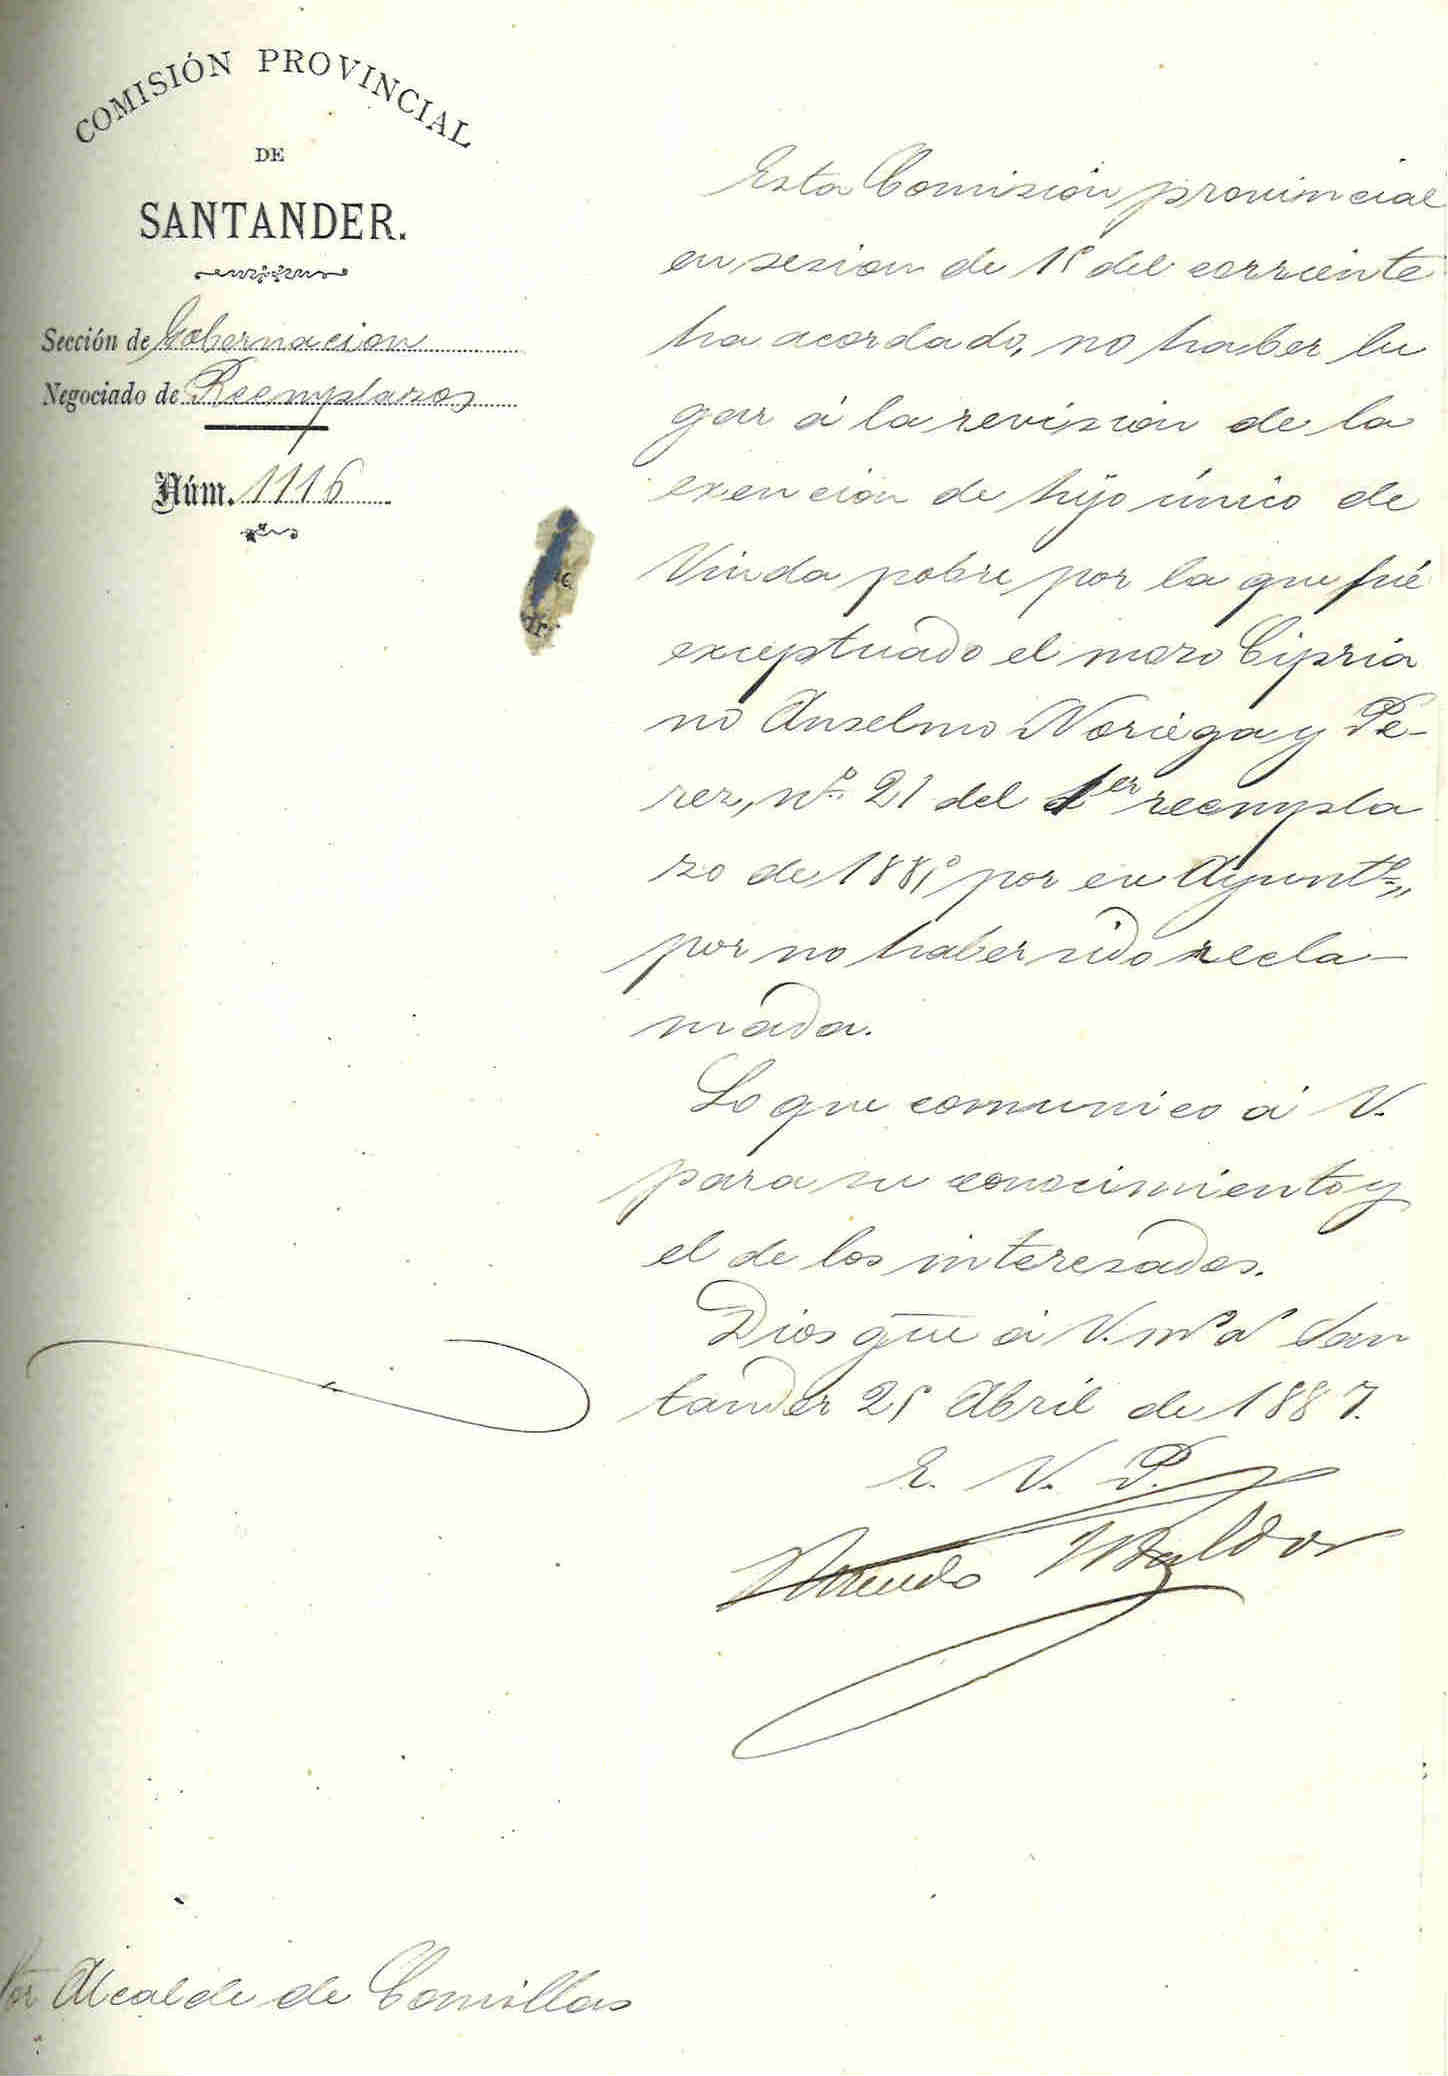 COMISIÓN PROVINCIAL
DE
SANTANDER.
Sección de Gobernacion
Negociado de Reemplazos
Núm. 1116
Esta Comision provincial
en sesion de 15 del corriente
ha acordado, no haber lu
gar á la revision de la
exencion de hijo único de
Viuda pobre por la que fué
exceptuado el mozo Cipria
no Anselmo Noriega y Pe-
rez, nº 21 del 1er reempla
zo de 1885 por ese Ayuntº,
por no haber sido recla-
mada.
Lo que comunico á V.
para su conocimiento y
el de los interesados.
Dios gue á V. ms as San
tander 25 Abril de 1887.
E. V. P.
Alcalde de Comillas